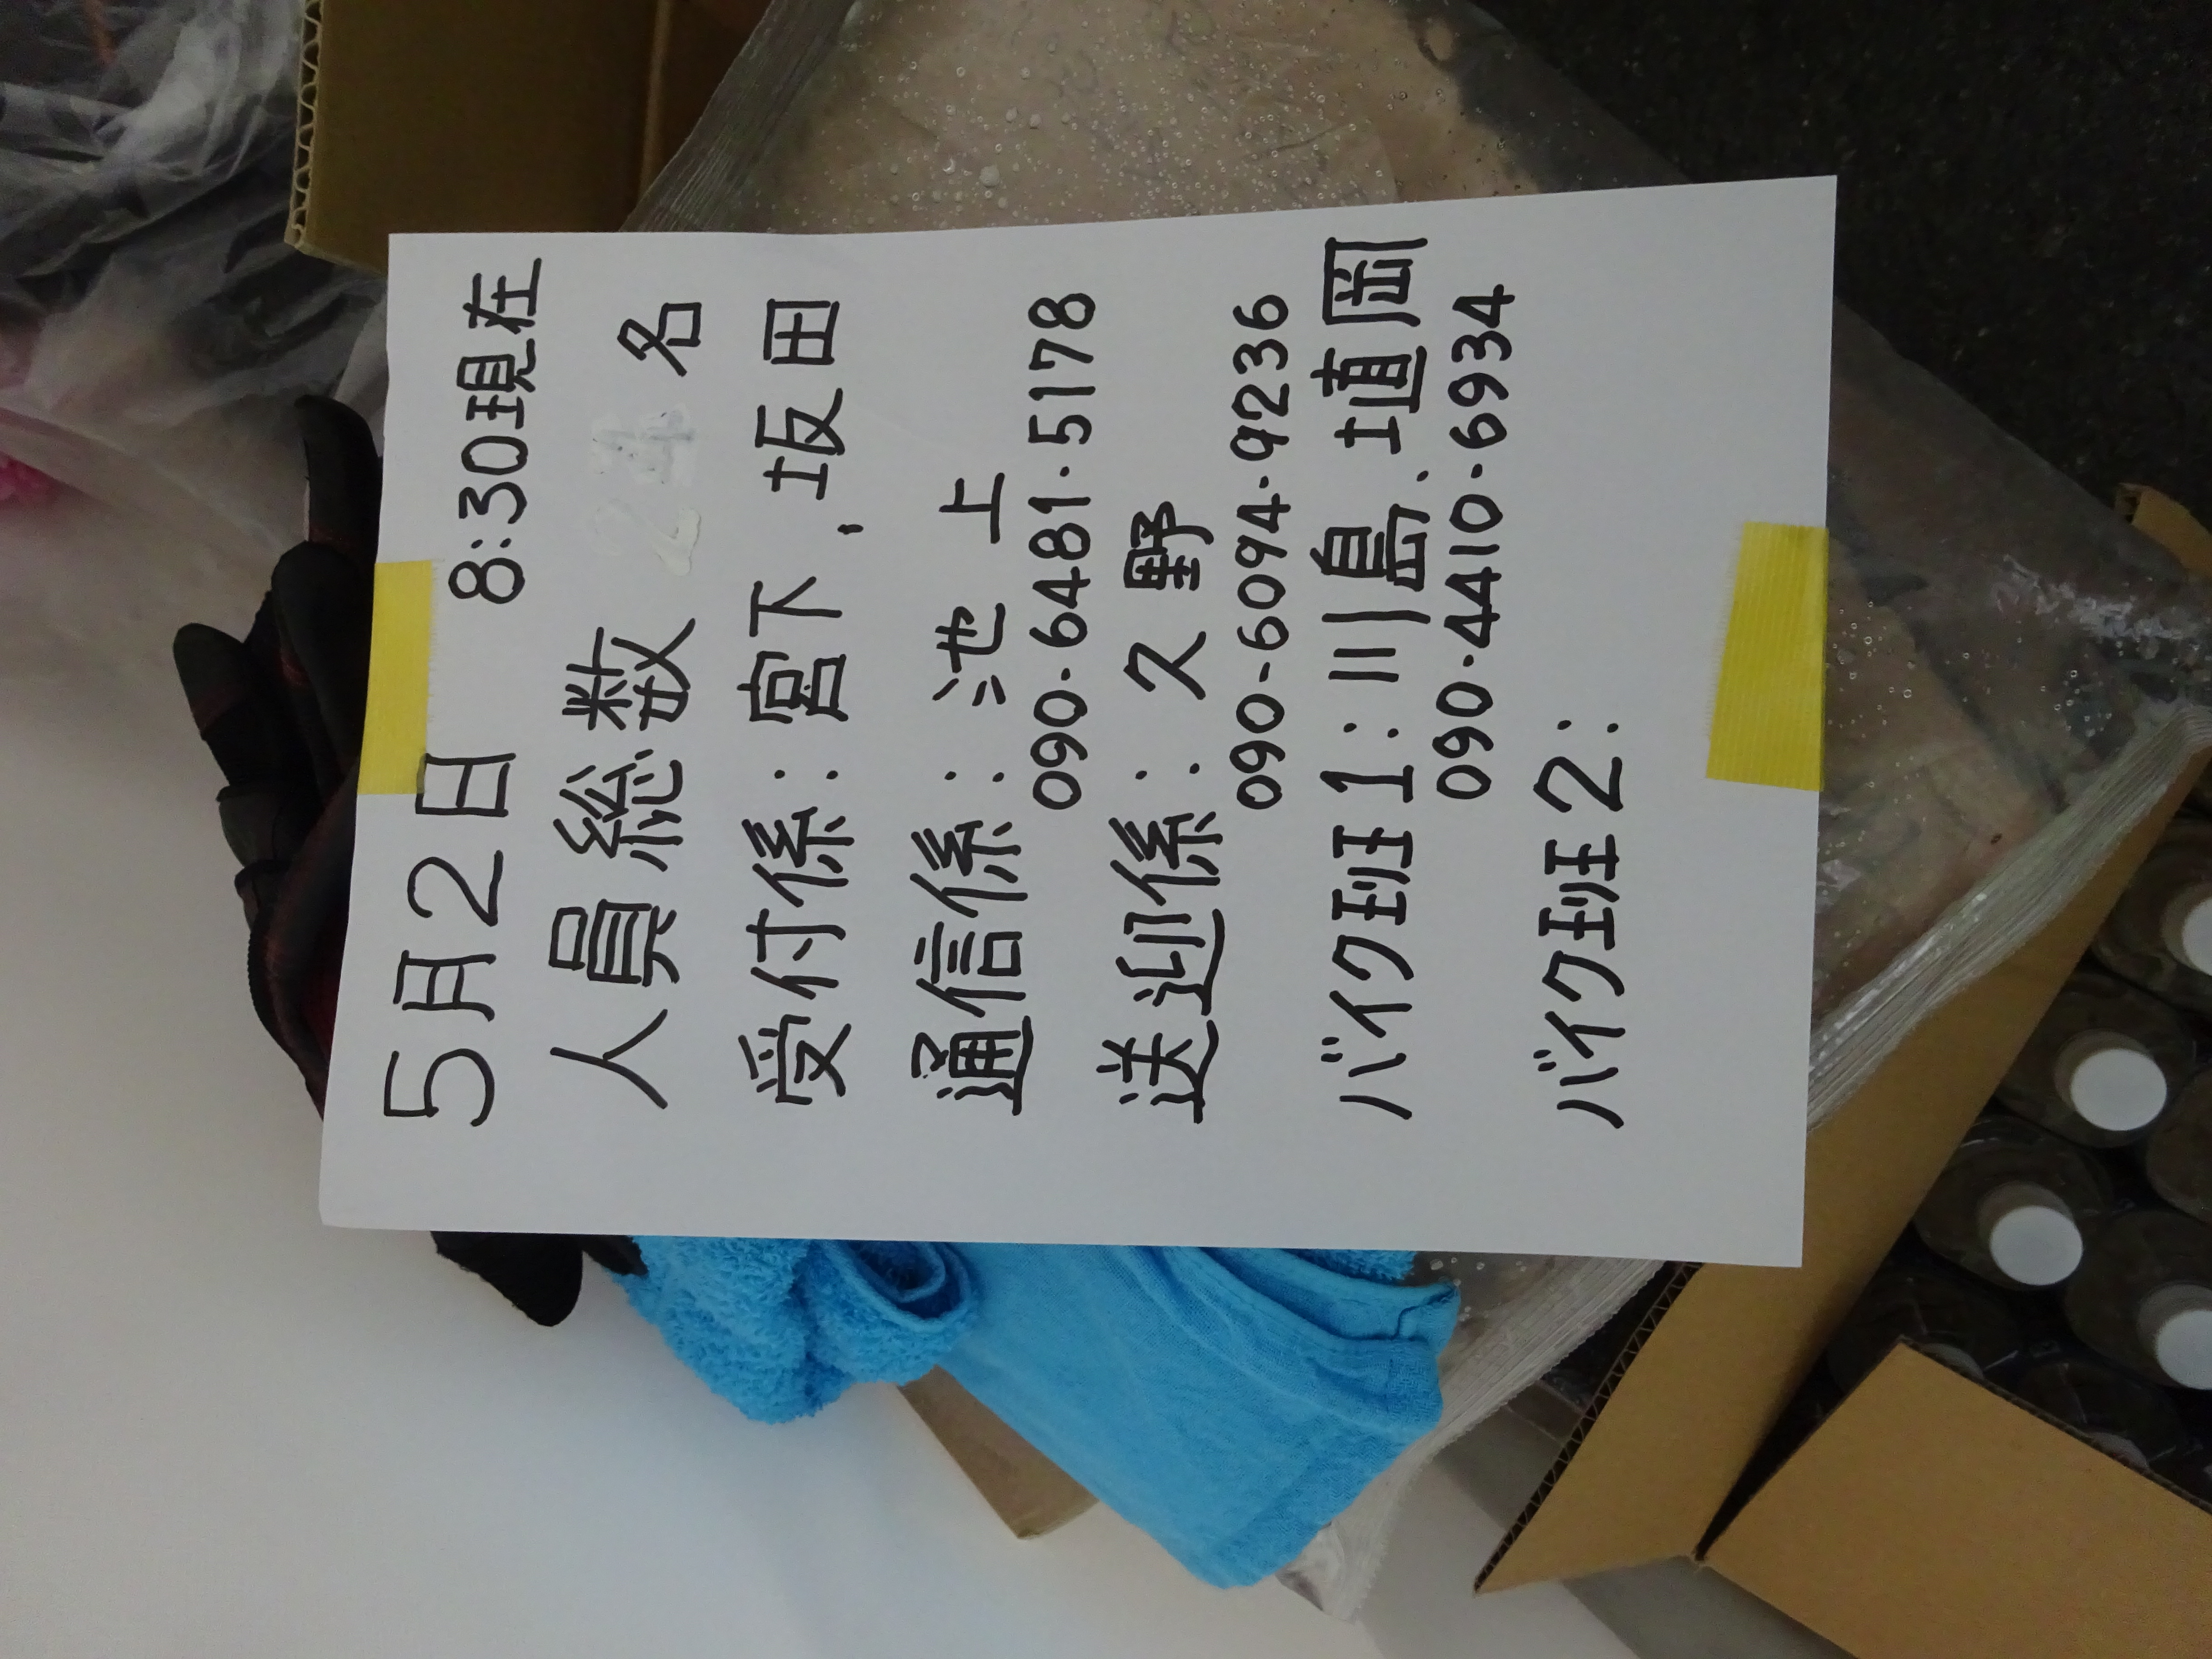 5月2日 8:30現在
人員総数 名
受付係:宮下、坂田
通信係:池上
090-6481-5178
送迎係:久野
090-6094-9236
バイク班1:川島、埴岡
090-4410-6934
バイク班2: